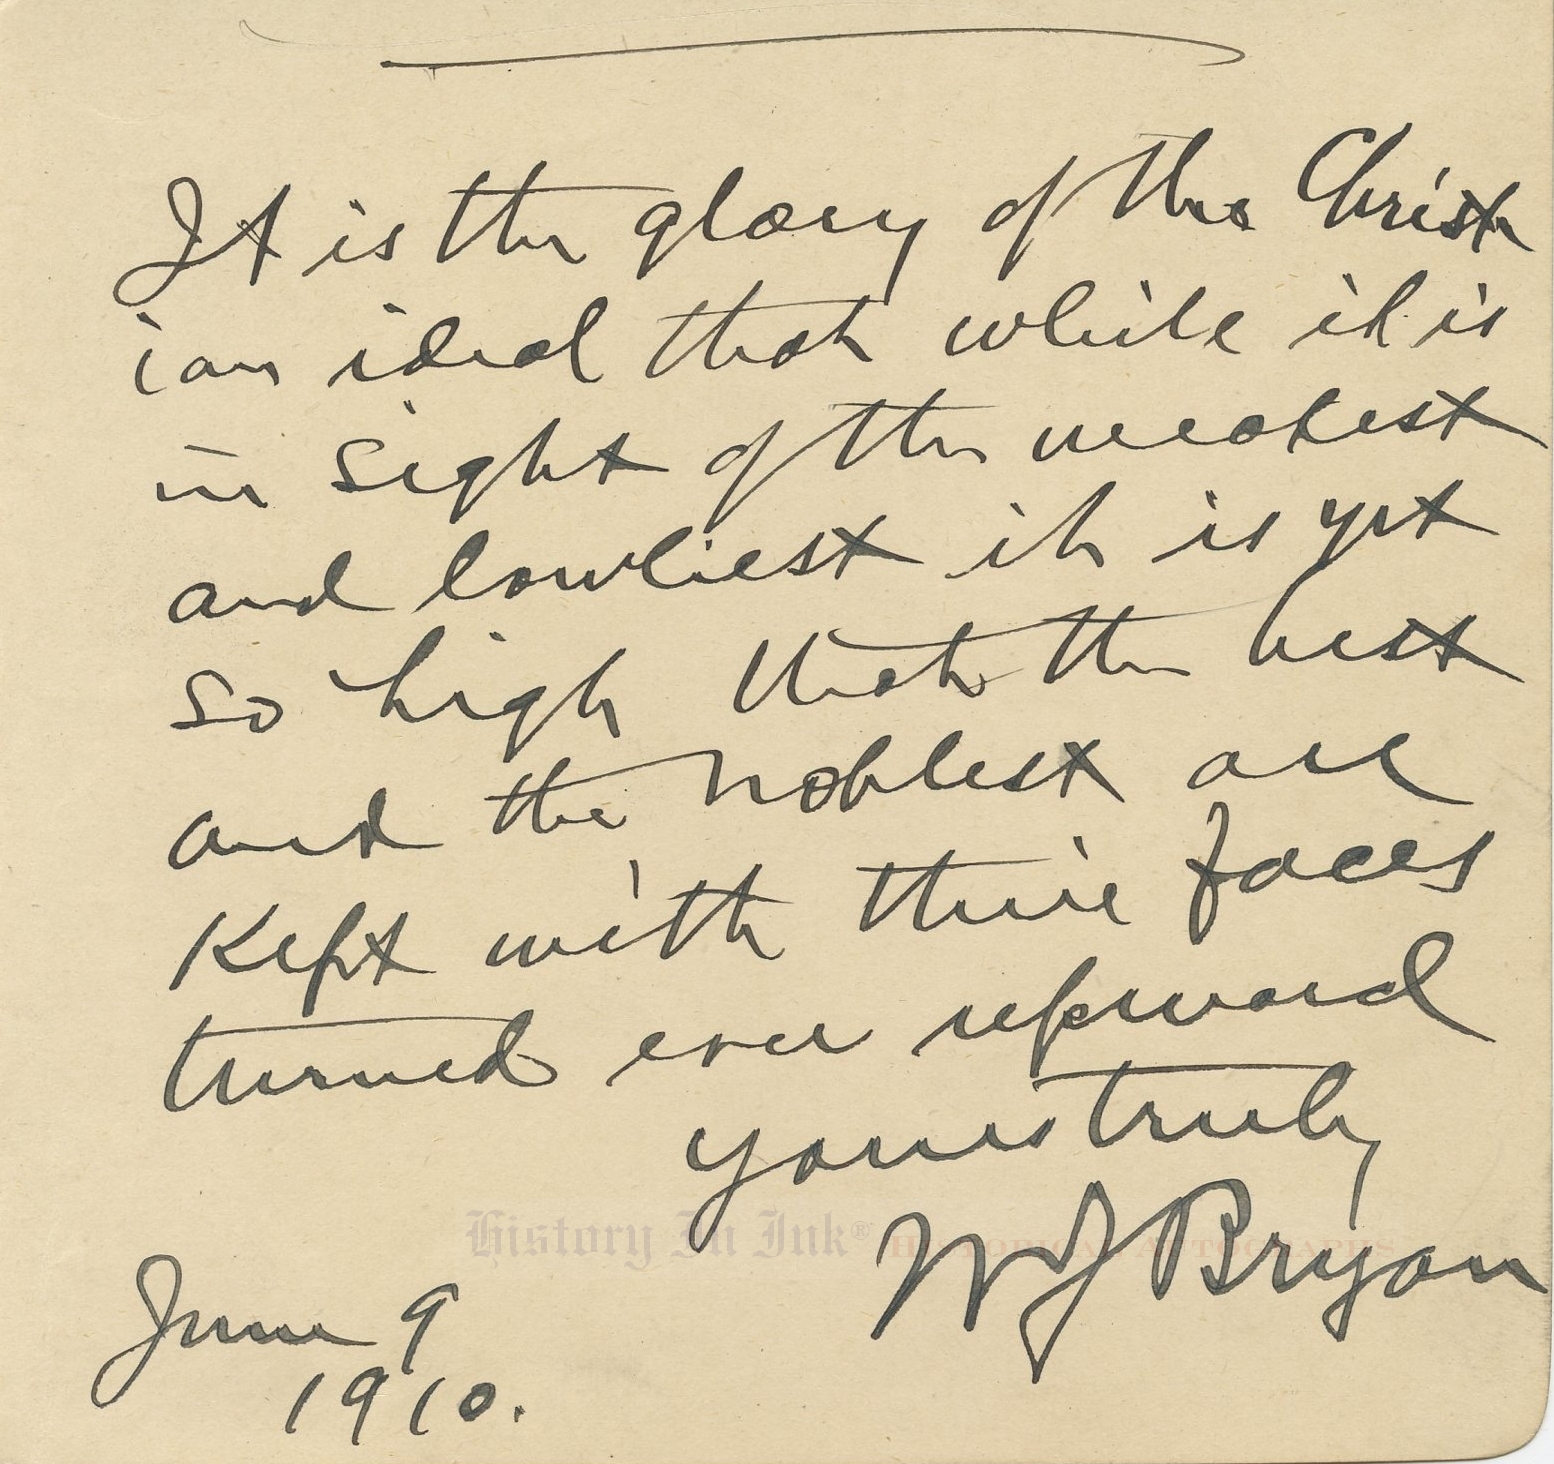 It is the glory of the Christ
ian ideal that while it is
in sight of the weakest
and lowliest it is yet
so high that the best
and the noblest are
Kept with their faces
turned ever upward
yours truly
History In Ink® HISTORICAL AUTOGRAPHS
WJ Bryan
June 9
1910.